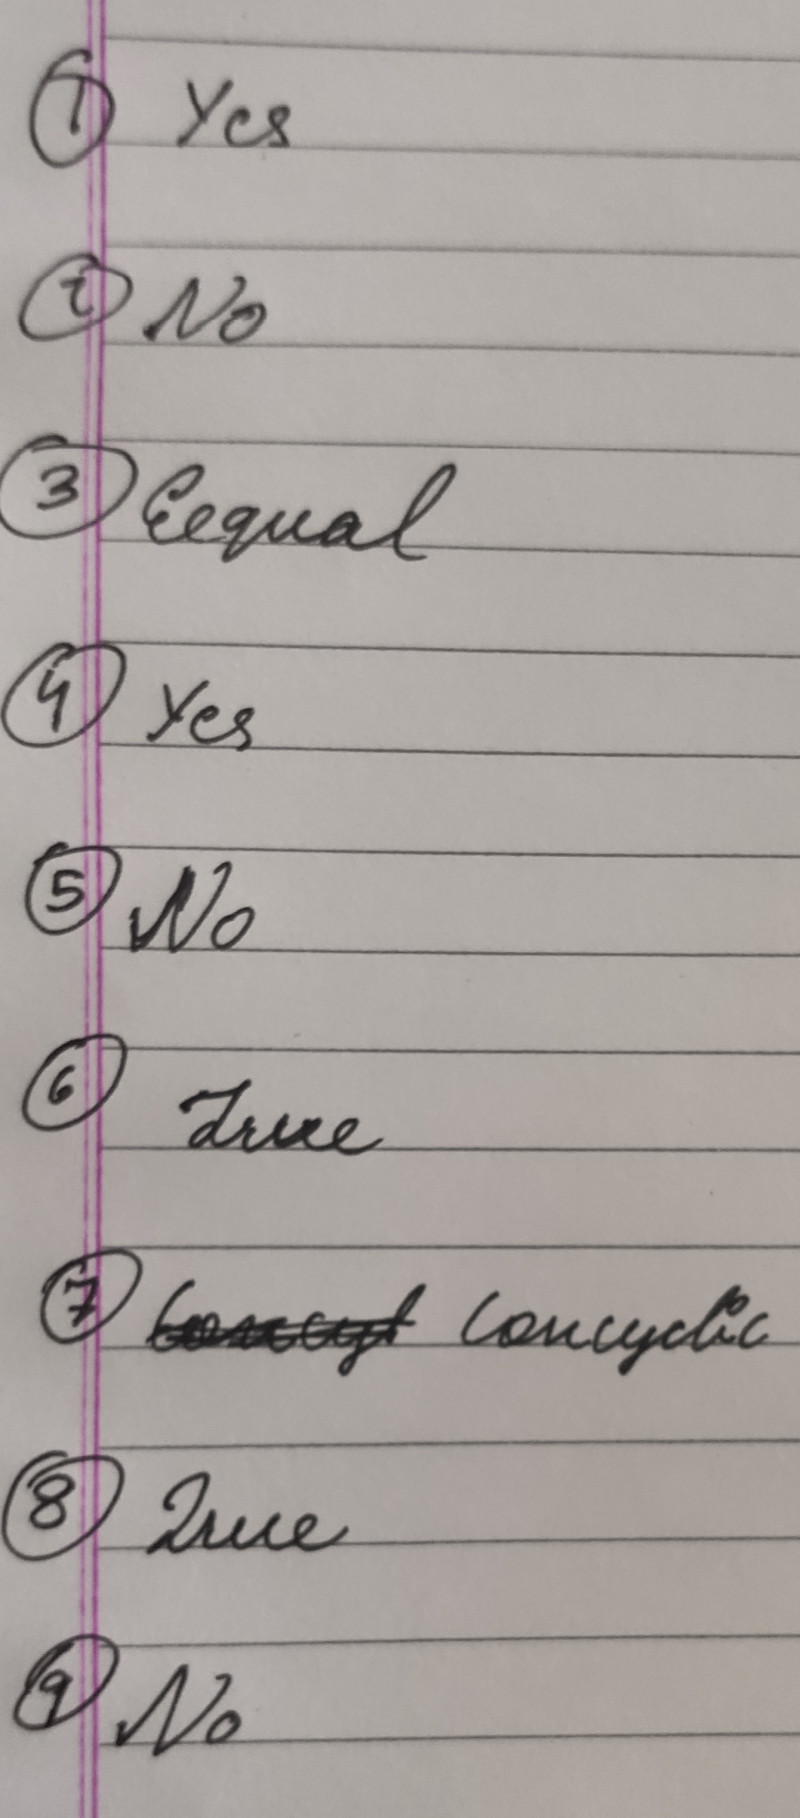 1 Yes
2 No
3 Eequal
4 Yes
5 No
6 True
7 Concyclic
8 True
9 No